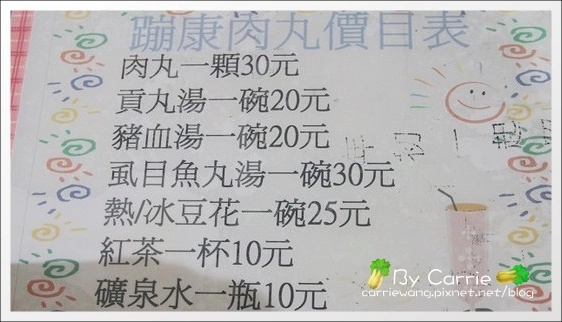 蹦康肉丸價目表
肉丸一顆30元
貢丸湯一碗20元
豬血湯一碗20元
虱目魚丸湯一碗30元
熱/冰豆花一碗25元
紅茶一杯10元
礦泉水一瓶10元
By Carrie
carriewang.pixnet.net/blog